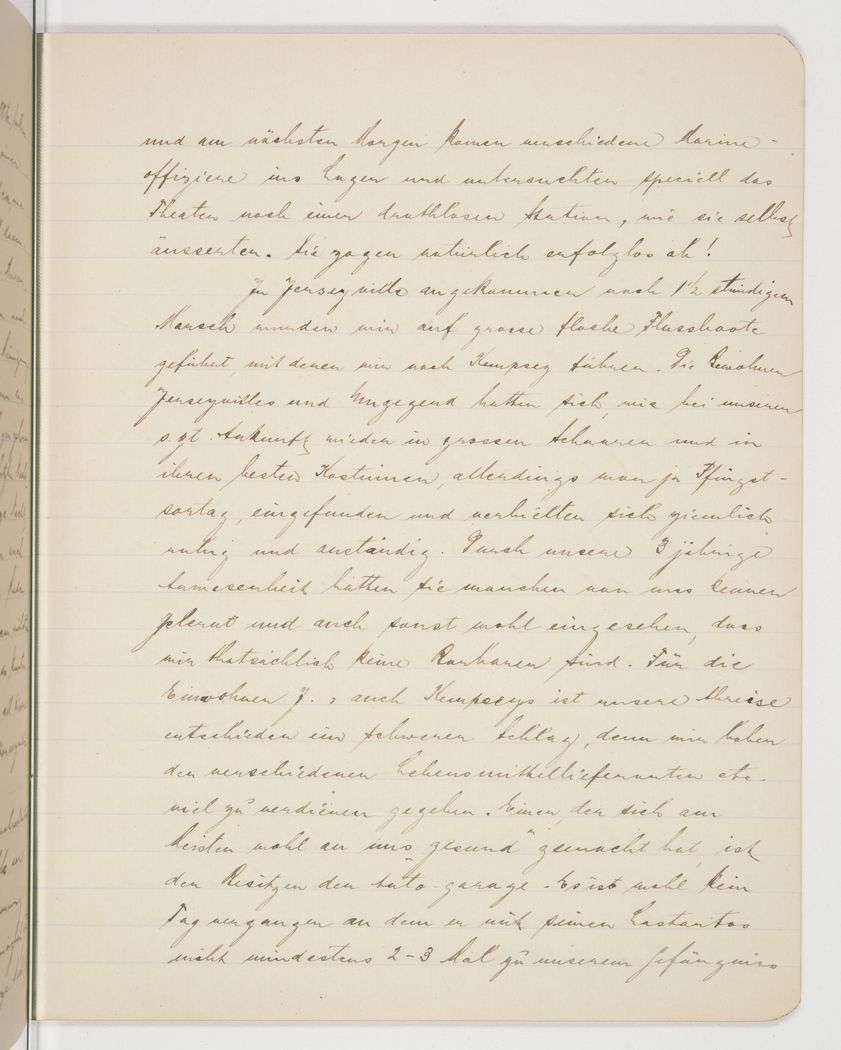 und am nächsten Morgen kamen verschiedene Marine-
offiziere ins Lager und untersuchten speciell das
Theater nach einer drathlosen Station, wie sie selbst
äusserten. Sie zogen natürlich erfolglos ab!
In Jerseyville angekommen nach 1½ stündigem
Marsch wurden wir auf grosse flache Flussboote
geführt, mit denen wir nach Kempsey fuhren. Die Bewohner
Jerseyvilles und Umgegend hatten sich, wie bei unserer
s. zt. Ankunft wieder in grossen Schaaren und in
ihren besten Kostümen, allerdings war ja Pfingst-
sontag, eingefunden und verhielten sich ziemlich
ruhig und anständig. Durch unsere 3 jährige
Anwesenheit hatten sie manchen von uns kennen
gelernt und auch sonst wohl eingesehen, dass
wir thatsächlich keine Barbaren sind. Für die
Einwohner J., auch Kempseys ist unsere Abreise
entschieden ein schwerer Schlag, denn wir haben
den verschiedenen Lebensmittellieferanten etc.
viel zu verdienen gegeben. Einer, der sich am
Meisten wohl an uns „gesund" gemacht hat, ist
der Besitzer der Auto-garage. Es ist wohl kein
Tag vergangen an dem er mit seinen Lastautos
nicht mindestens 2-3 Mal zu unserem Gefängniss